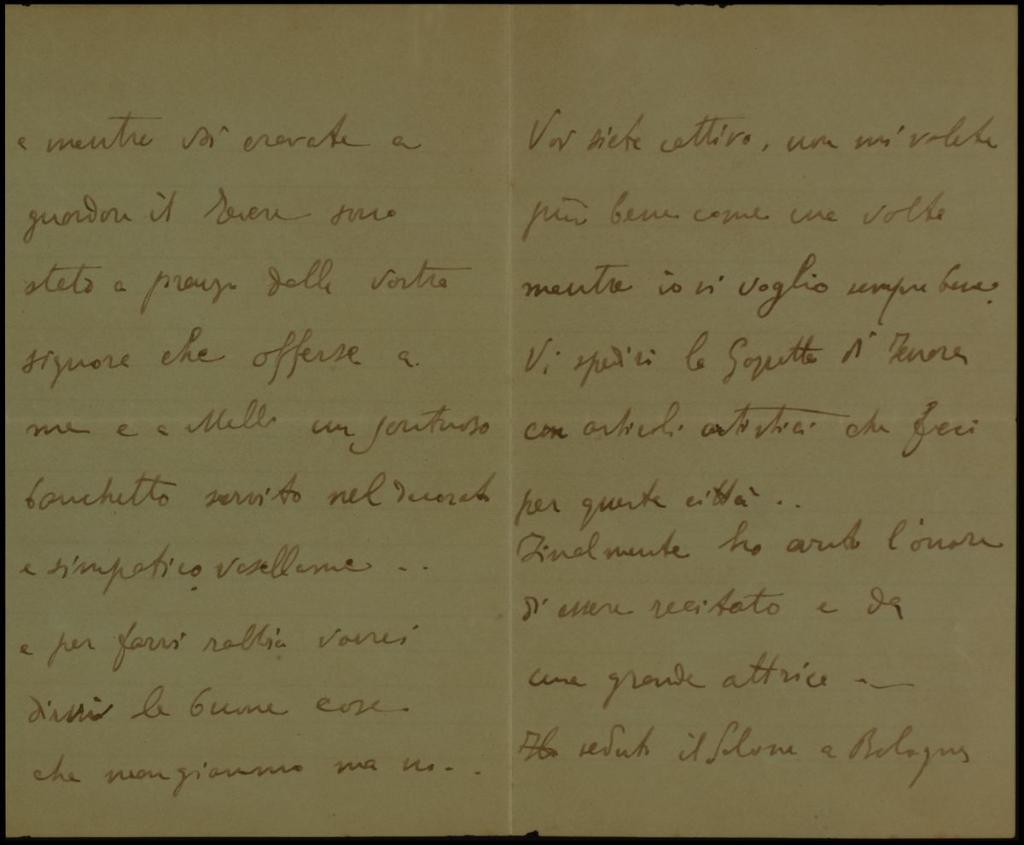 e mentre voi eravate a
guardare il Tevere sono
stato a pranzo dalla vostra
signora che offerse a
me e a Melli un sontuoso
banchetto servito nel decorato
e simpatico vasellame ..
e per farvi rabbia vorrei
dirvi le buone cose
che mangiammo ma no...
Voi siete cattivo, non mi volete
più bene come una volta
mentre io vi voglio sempre bene.
Vi spedii la Gazzetta di
con articoli artistici che feci
per questa città ..
Finalmente ho avuto l'onore
di essere recitato e da
una grande attrice —
Ho veduto il Salone a Bologna